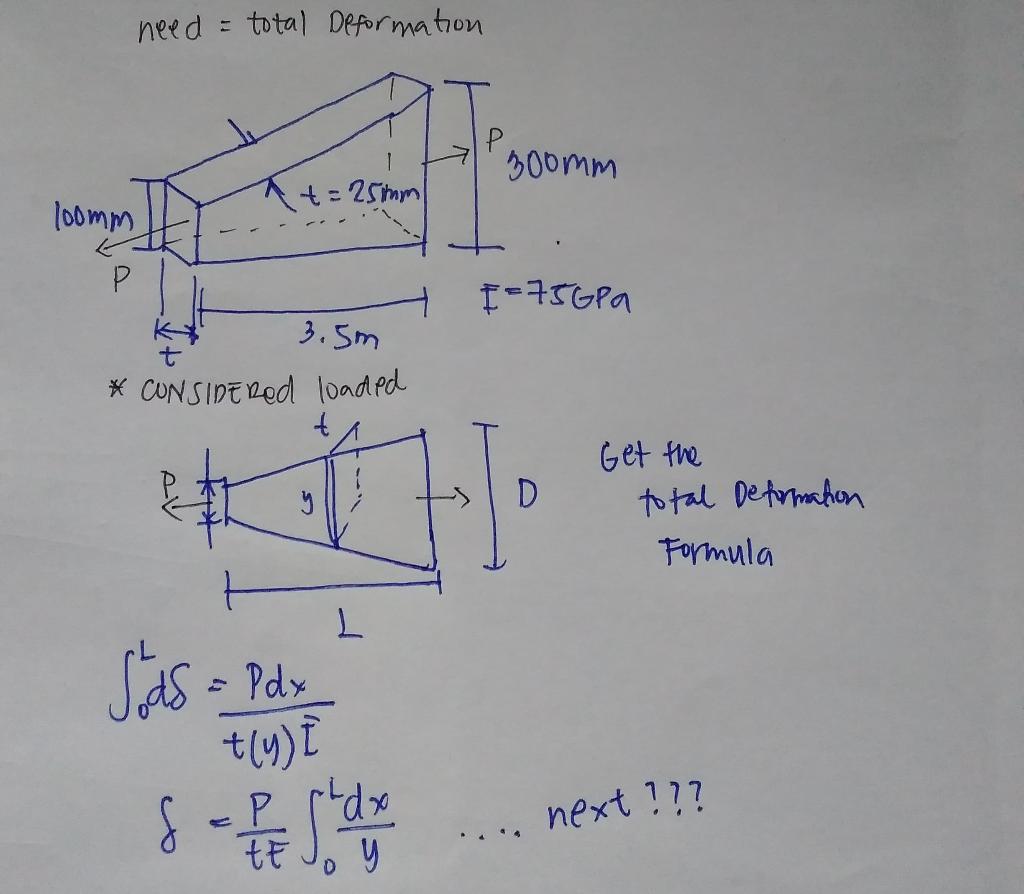 need = total Deformation
P
300mm
t = 25mm
100mm
P
E = 75GPa
3.5m
t
* CONSIDERed loaded
t
Get the
P
y
D
total Deformation
Formula
L
∫₀ᴸ dδ = Pdx / t(y)E
δ = P/tE ∫₀ᴸ dx/y .... next ???